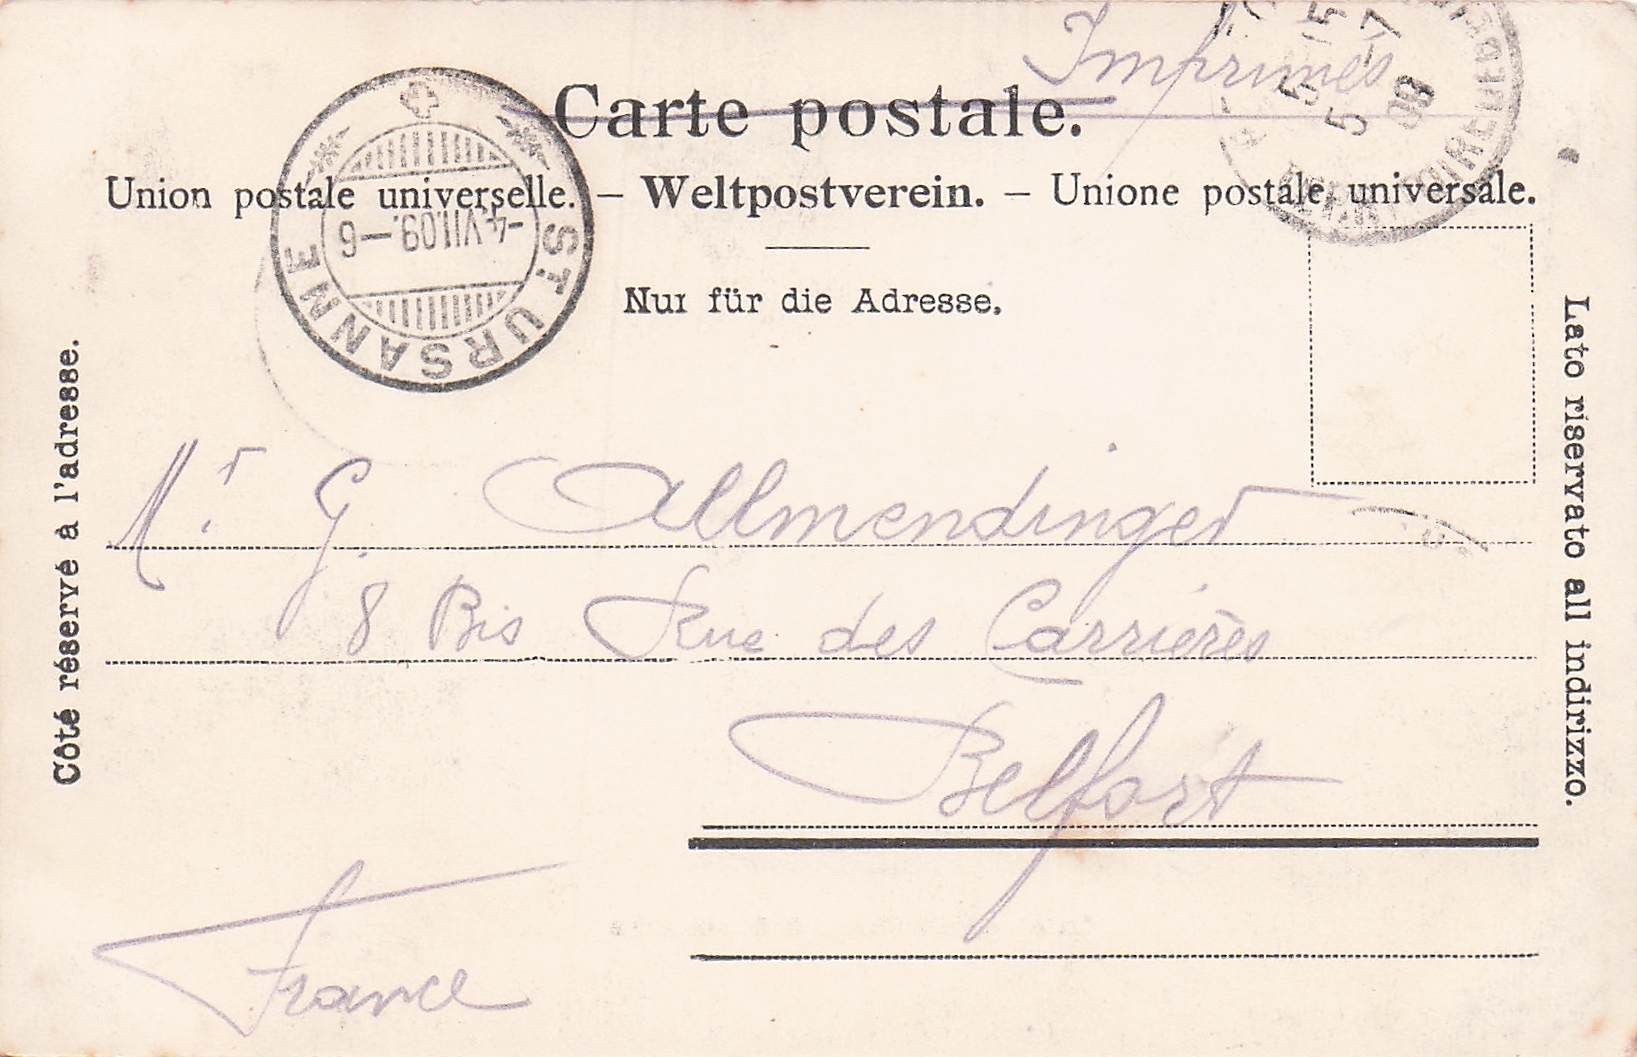 Imprimés
Carte postale.
Union postale universelle. – Weltpostverein. – Unione postale universale.
Nur für die Adresse.
ST URSANNE
-4.VII.09.-6
5 15
5 -7
09
Côté réservé à l'adresse.
Lato riservato all indirizzo.
Mr. G. Allmendinger
8 Bis Rue des Carrières
Belfort
France